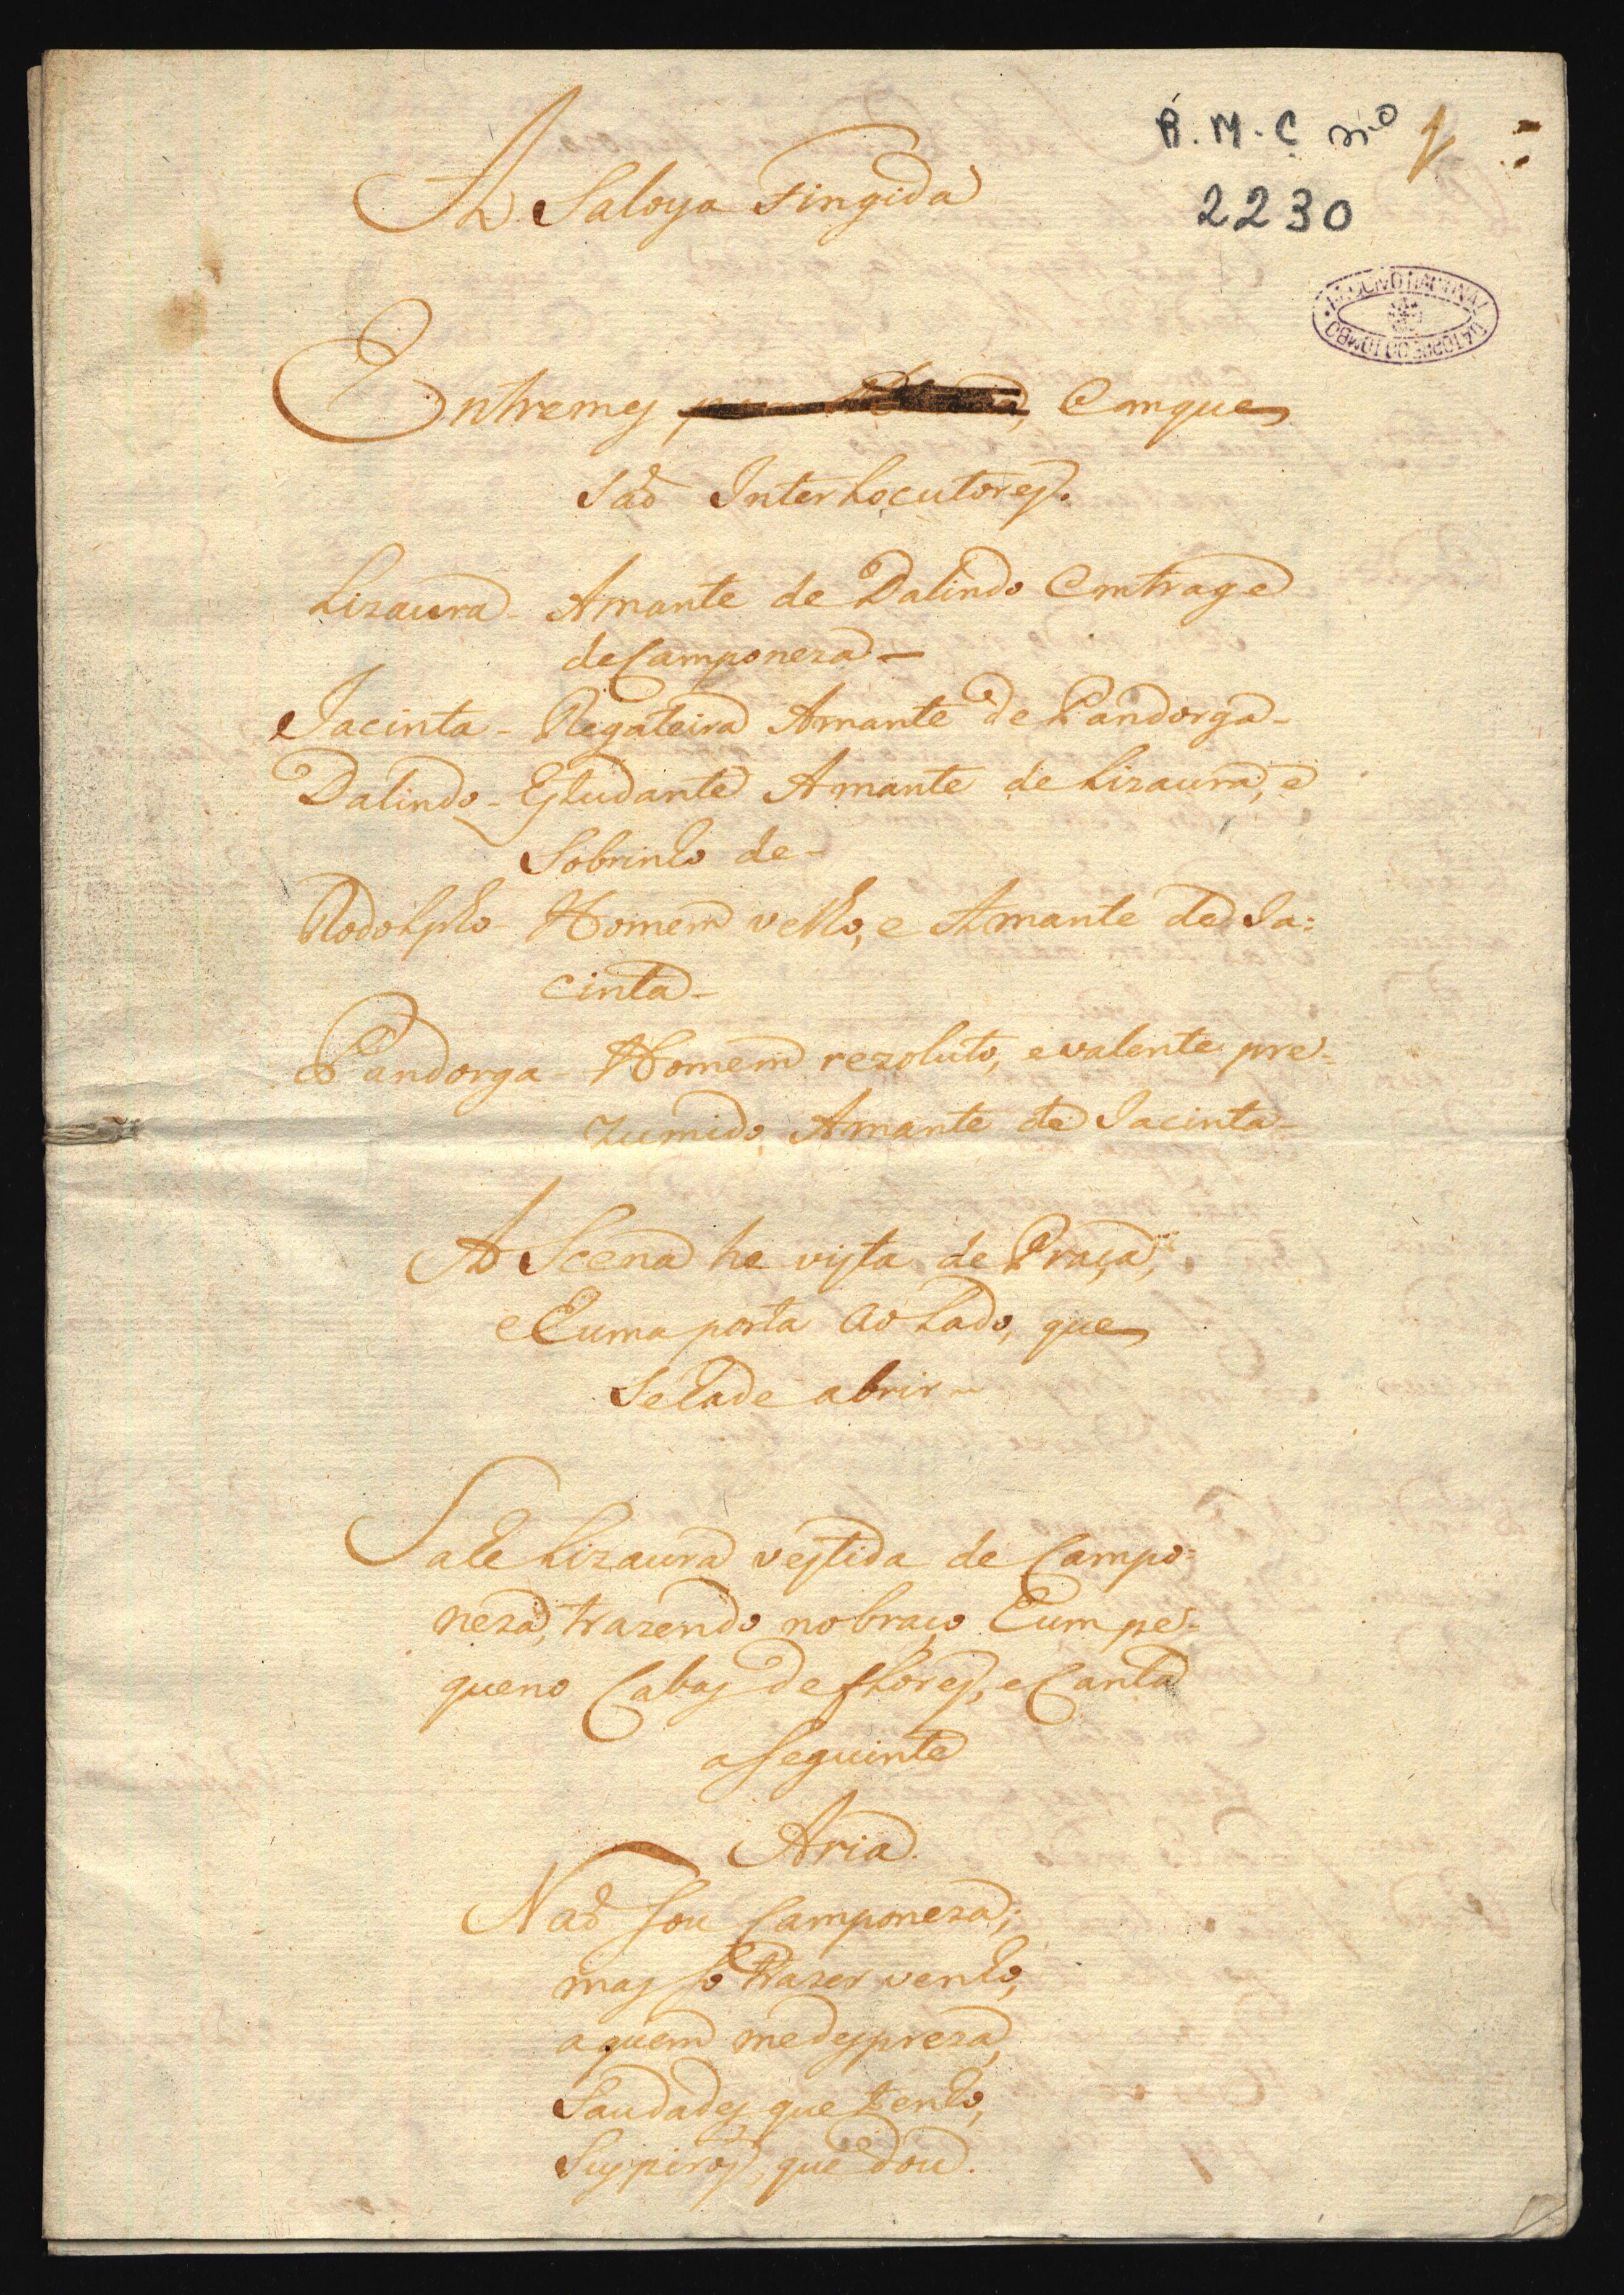 R. M. C nº 1
2230
ARCHIVO NACIONAL DA TORRE DO TOMBO
A Saloya Fingida
Entremes Em que
saõ Interlocutores.
Lizaura - Amante de Dalindo em trage
de Camponeza -
Jacinta - Regateira Amante de Pandorga -
Dalindo - Estudante Amante de Lizaura, e
Sobrinho de -
Rodolpho - Homem velho, e Amante de Ja:
cinta -
Pandorga - Homem rezoluto, e valente pre-
zumido, Amante de Jacinta -
A Scena he vista de Praça,
e huma porta ao lado, que
se hade abrir -
Sahe Lizaura vestida de Campo=
neza, trazendo no braço hum pe=
queno Cabas de flores, e Canta
a seguinte
Aria.
Naõ sou Camponeza;
mas só trazer venho,
a quem me despreza,
Saudades que tenho,
Suspiros, que dou.